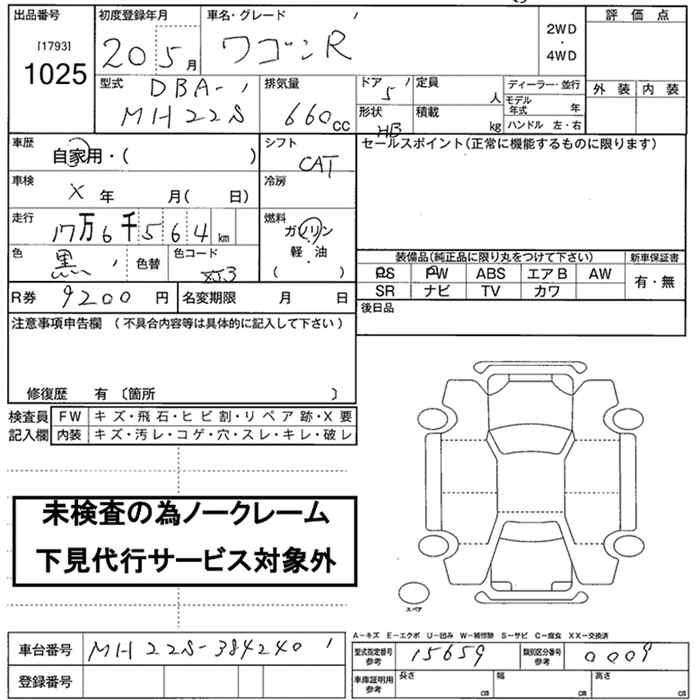 出品番号 初度登録年月 車名・グレード 2WD ・ 4WD 評価点
[1793] 1025 20 5月 ワゴンR 外装 内装
型式 DBA- MH22S 排気量 660cc ドア 5 定員 人 ディーラー・並行
形状 HB 積載 kg モデル年式 年
ハンドル 左・右
車歴 自家用・( ) シフト CAT セールスポイント(正常に機能するものに限ります)
車検 X 年 月( 日) 冷房
走行 17万6千564km 燃料 ガソリン 軽・油 ( )
色 黒 色替 色コード 装備品(純正品に限り丸をつけて下さい) 新車保証書
PS PW ABS エアB AW 有・無
SR ナビ TV カワ
R券 9200円 名変期限 月 日 後日品
注意事項申告欄 (不具合内容等は具体的に記入して下さい)
修復歴 有 〔箇所 〕
検査員 FW キズ・飛石・ヒビ割・リペア跡・X要
記入欄 内装 キズ・汚レ・コゲ・穴・スレ・キレ・破レ
未検査の為ノークレーム
下見代行サービス対象外
スペア
A-キズ E-エクボ U-凹み W-補修跡 S-サビ C-腐食 XX-交換済
車台番号 MH22S-384240 型式指定番号 参考 15659 類別区分番号 参考 0009
登録番号 車庫証明用 参考 長さ cm 幅 cm 高さ cm